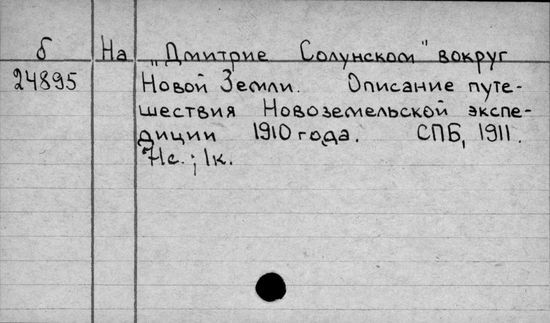 б На „Дмитрие Солунском" вокруг
24895 Новой Земли. Описание путе-
шествия Новоземельской экспе-
диции 1910 года. СПБ, 1911.
71с.; 1к.